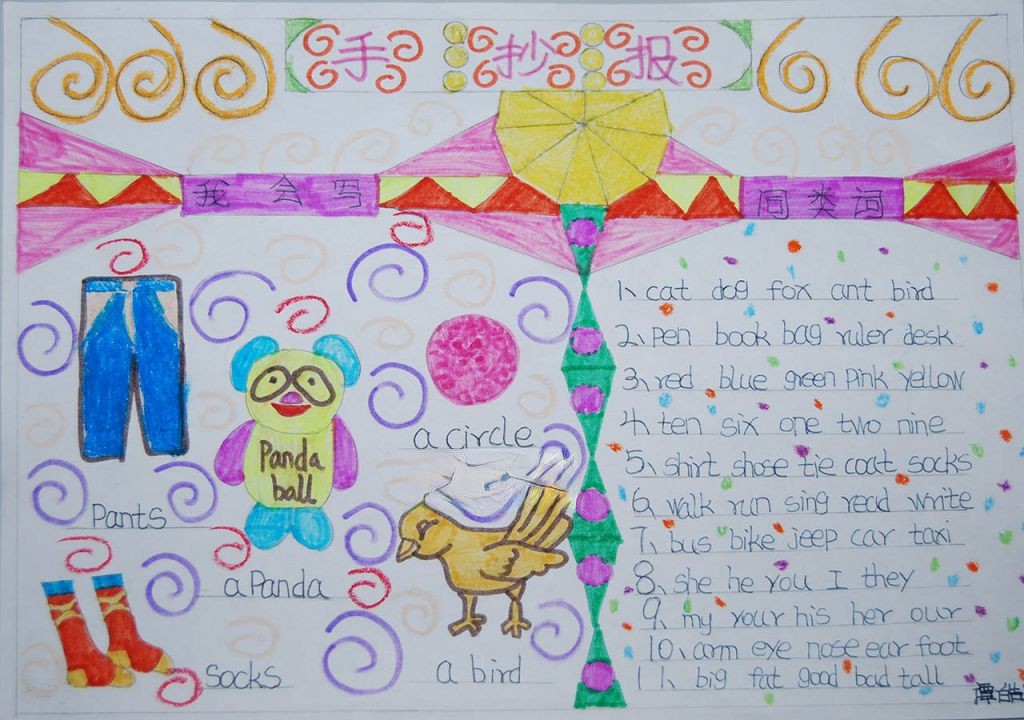 手抄报
我会写
同类词
Pants
Panda
ball
a Panda
socks
a circle
a bird
1、cat dog fox ant bird
2、pen book bag ruler desk
3、red blue green pink yellow
4、ten six one two nine
5、shirt shose tie coat socks
6、walk run sing read write
7、bus bike jeep car taxi
8、she he you I they
9、my your his her our
10、arm eye nose ear foot
11、big fat good bad tall
谭皓